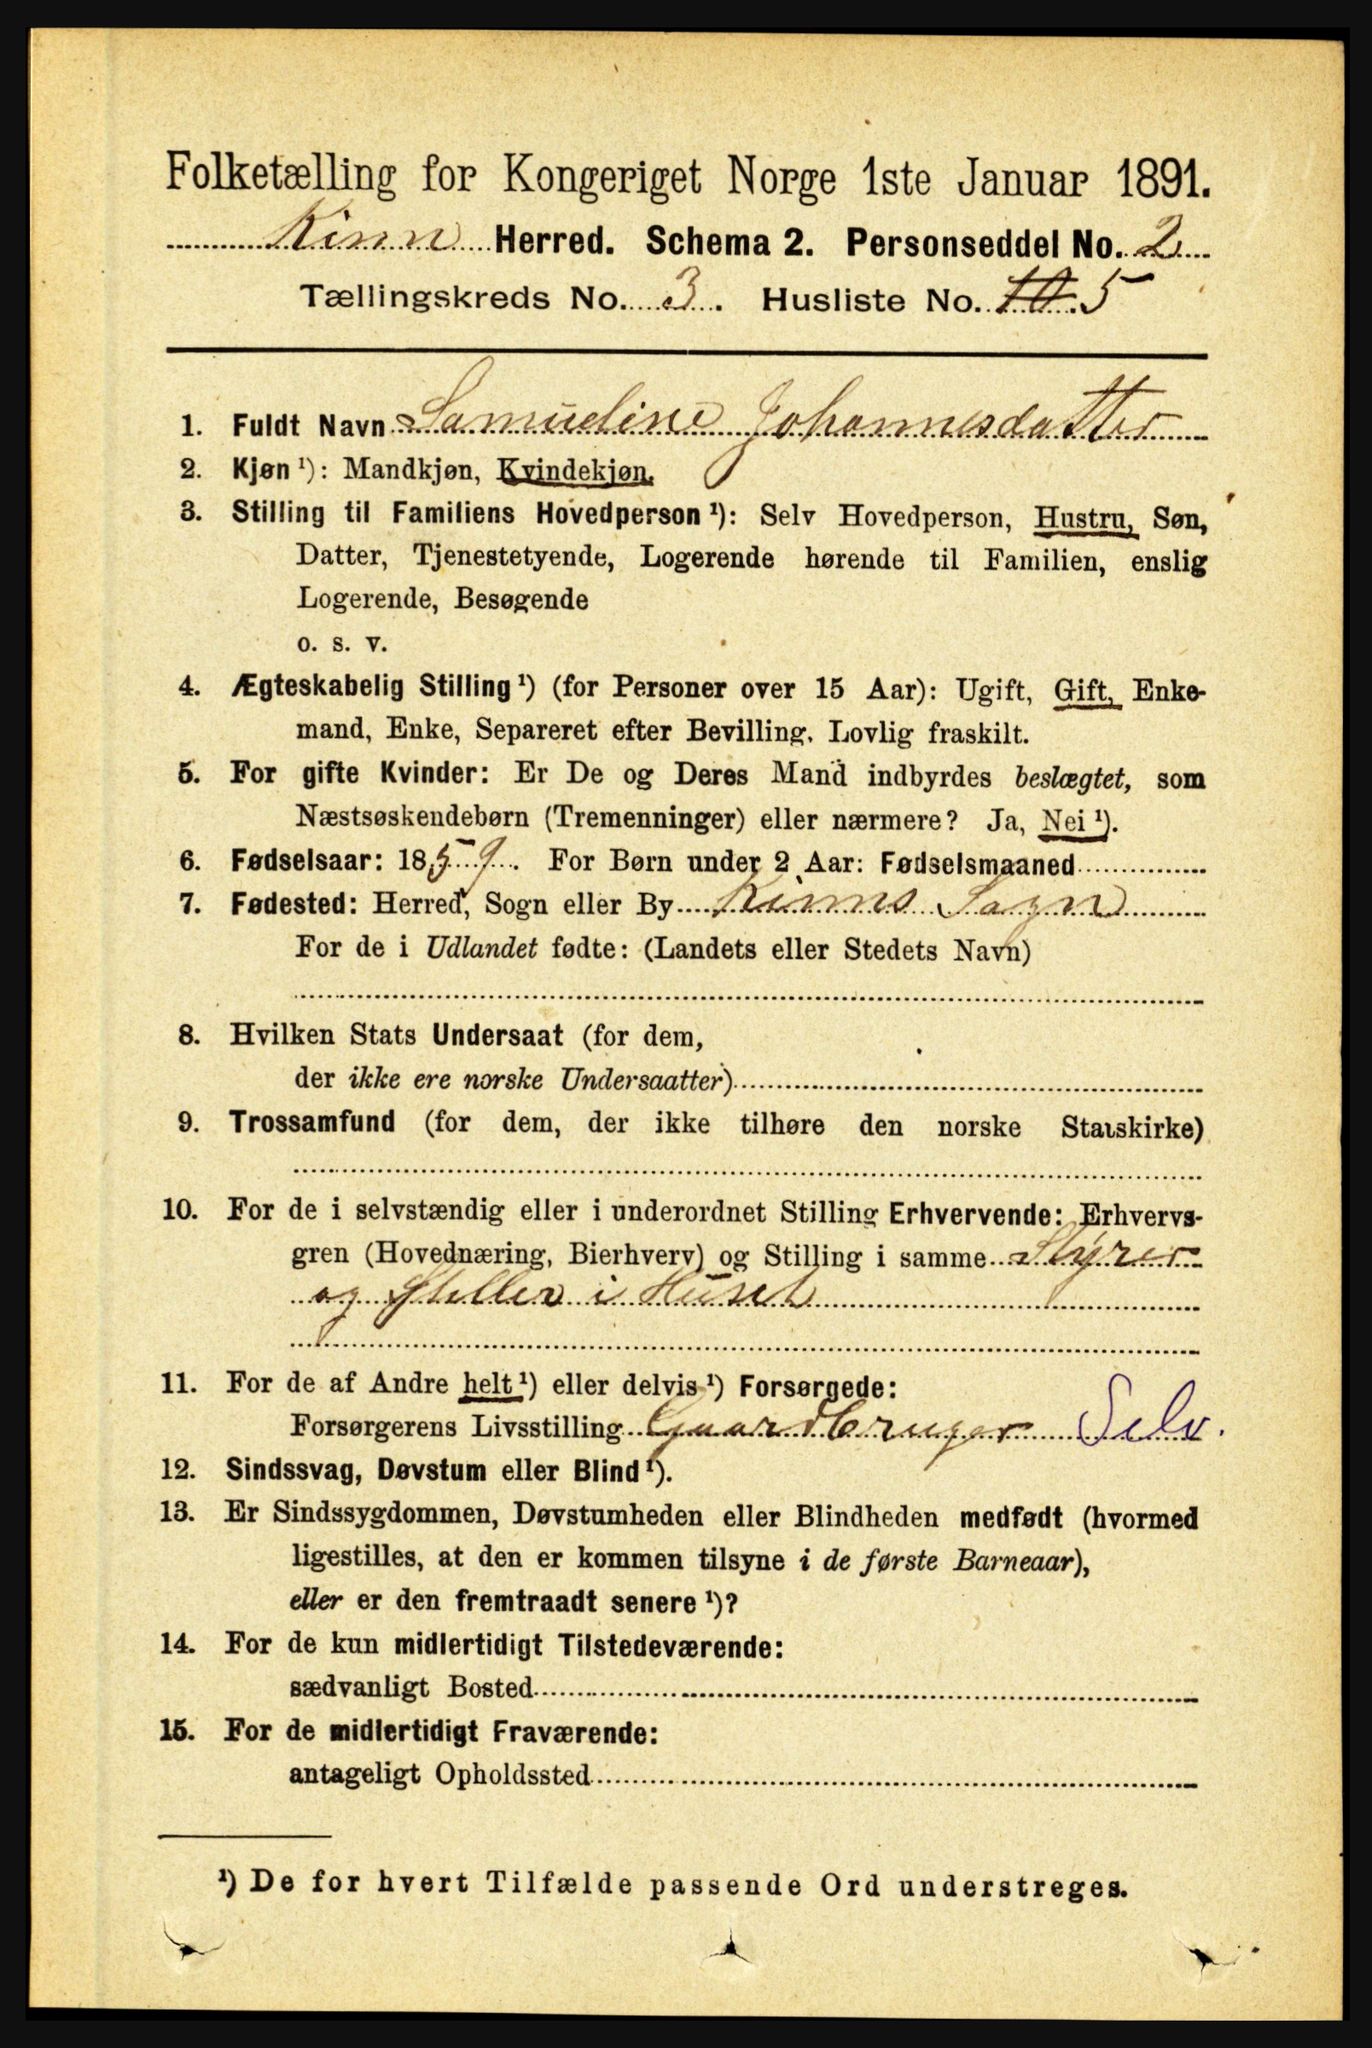 Folketælling for Kongeriget Norge 1ste Januar 1891.
Kinn Herred. Schema 2. Personseddel No. 2
Tællingskreds No. 3. Husliste No. 10. 5
1. Fuldt Navn Samueline Johannesdatter
2. Kjøn ¹): Mandkjøn, Kvindekjøn.
3. Stilling til Familiens Hovedperson ¹): Selv Hovedperson, Hustru, Søn,
Datter, Tjenestetyende, Logerende hørende til Familien, enslig
Logerende, Besøgende
o. s. v.
4. Ægteskabelig Stilling ¹) (for Personer over 15 Aar): Ugift, Gift, Enke-
mand, Enke, Separeret efter Bevilling, Lovlig fraskilt.
5. For gifte Kvinder: Er De og Deres Mand indbyrdes beslægtet, som
Næstsøskendebørn (Tremenninger) eller nærmere? Ja, Nei ¹).
6. Fødselsaar: 1859. For Børn under 2 Aar: Fødselsmaaned
7. Fødested: Herred, Sogn eller By Kinns Sogn
For de i Udlandet fødte: (Landets eller Stedets Navn)
8. Hvilken Stats Undersaat (for dem,
der ikke ere norske Undersaatter)
9. Trossamfund (for dem, der ikke tilhøre den norske Statskirke)
10. For de i selvstændig eller i underordnet Stilling Erhvervende: Erhvervs-
gren (Hovednæring, Bierhverv) og Stilling i samme Styrer
og Steller i Huset
11. For de af Andre helt ¹) eller delvis ¹) Forsørgede:
Forsørgerens Livsstilling Gaardbruger Selv.
12. Sindssvag, Døvstum eller Blind ¹).
13. Er Sindssygdommen, Døvstumheden eller Blindheden medfødt (hvormed
ligestilles, at den er kommen tilsyne i de første Barneaar),
eller er den fremtraadt senere ¹)?
14. For de kun midlertidigt Tilstedeværende:
sædvanligt Bosted
15. For de midlertidigt Fraværende:
antageligt Opholdssted
¹) De for hvert Tilfælde passende Ord understreges.